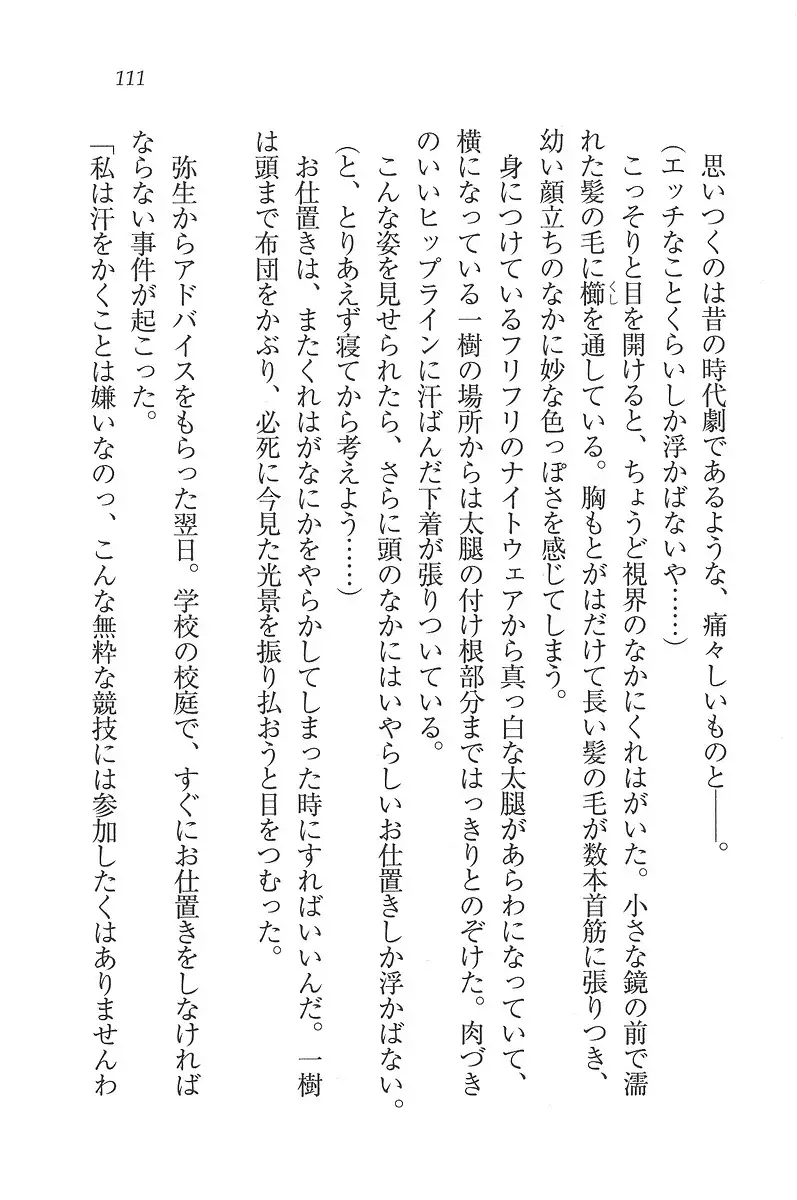 111
思いつくのは昔の時代劇であるような、痛々しいものと――。
（エッチなことくらいしか浮かばないや……）
こっそりと目を開けると、ちょうど視界のなかにくれはがいた。小さな鏡の前で濡
れた髪の毛に櫛を通している。胸もとがはだけて長い髪の毛が数本首筋に張りつき、
くし
幼い顔立ちのなかに妙な色っぽさを感じてしまう。
身につけているフリフリのナイトウェアから真っ白な太腿があらわになっていて、
横になっている一樹の場所からは太腿の付け根部分まではっきりとのぞけた。肉づき
のいいヒップラインに汗ばんだ下着が張りついている。
こんな姿を見せられたら、さらに頭のなかにはいやらしいお仕置きしか浮かばない。
（と、とりあえず寝てから考えよう……）
お仕置きは、またくれはがなにかをやらかしてしまった時にすればいいんだ。一樹
は頭まで布団をかぶり、必死に今見た光景を振り払おうと目をつむった。
弥生からアドバイスをもらった翌日。学校の校庭で、すぐにお仕置きをしなければ
ならない事件が起こった。
「私は汗をかくことは嫌いなのっ、こんな無粋な競技には参加したくはありませんわ